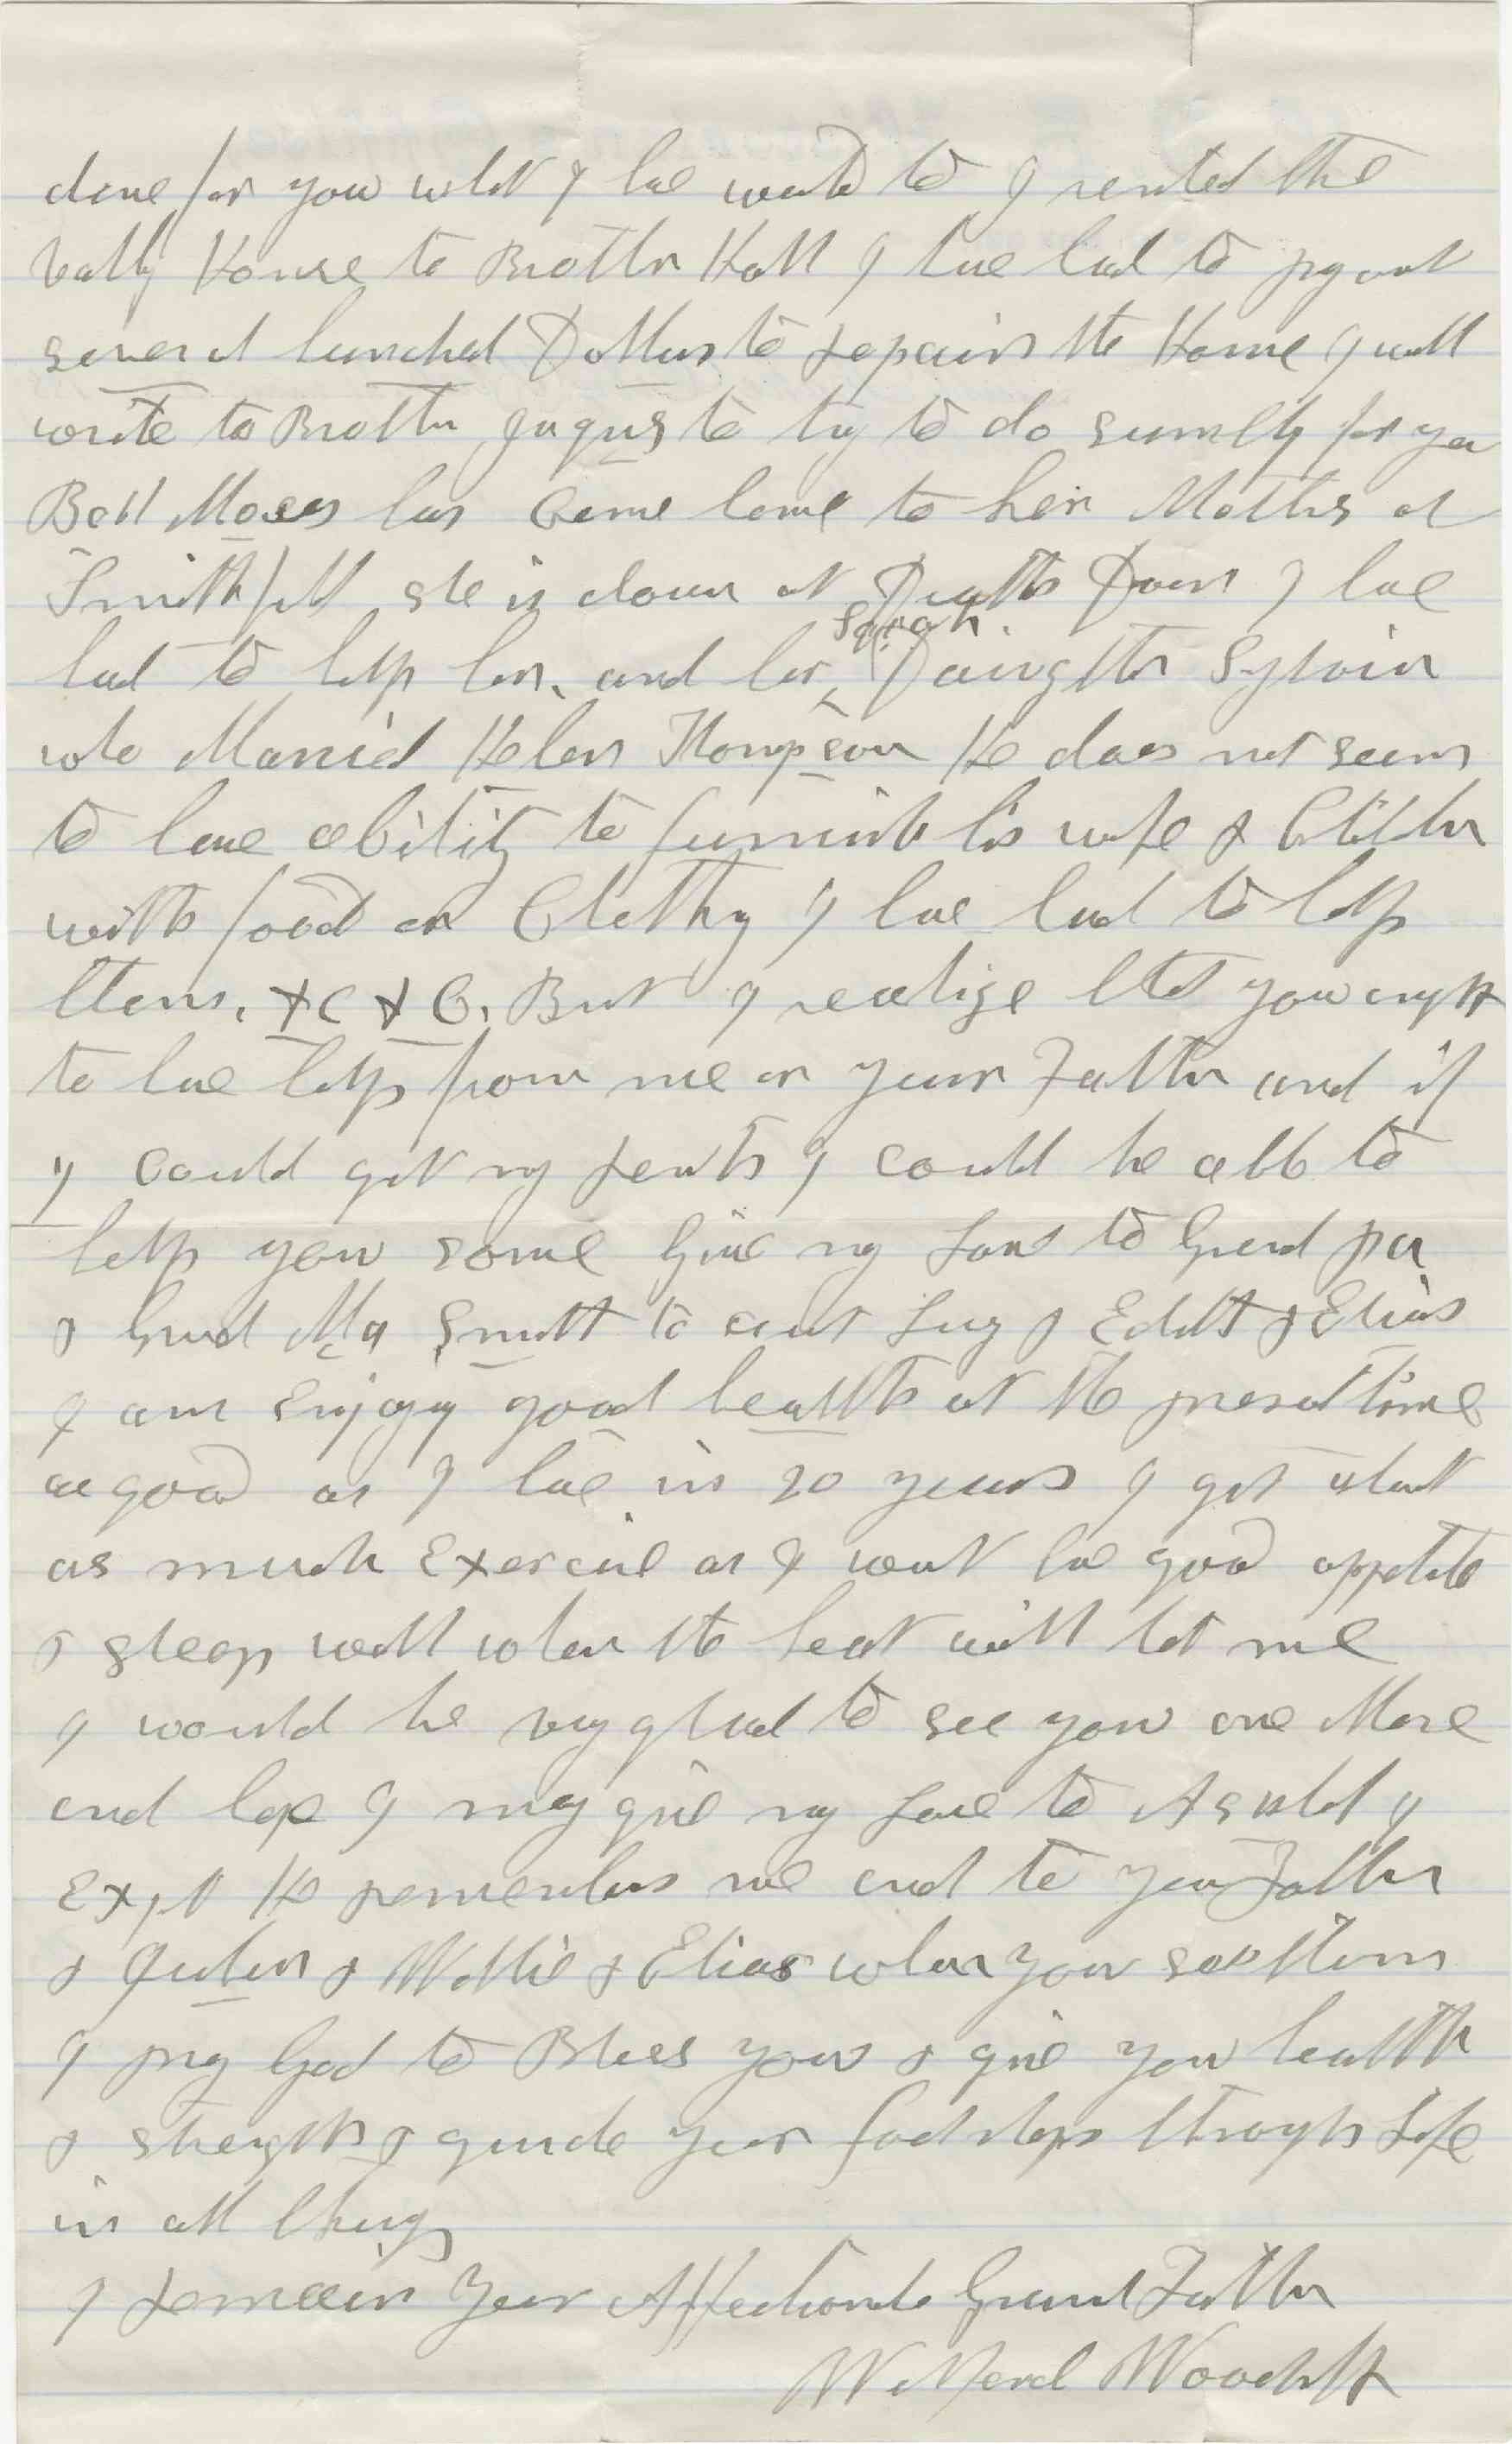 done for you what I have wanted to I rented the
vally House to Brother Hall I have had to pay out
several hundred Dollars to repair the House I will
write to Brother Jaques to try to do sumthing for you
Bell Moses has Come home to her Mothers at
Smithfield she is down at Deaths Door I have
had to help her, and her Sarah Daughter Sylvia
who Married Helen Thompson He does not seem
to have ability to furnish his wife & Children
with food or Clothing I have had to help
them, &c &c, But I realize that you ought
to have help from me or your Father and if
I Could get my rents I could be able to
help you some Give my Love to Grand pa
& Grand Ma Smith to aunt Lucy & Edith & Elias
I am Enjoying good health at the present time
as good as I have in 20 years I get about
as much Exercise as I want have good appetite
& sleep well when the heat will let me
I would be very glad to see you once More
and hope I may give my Love to Asahel I
Expect He remembers me and to your Father
& Julina & Willie & Elias when you see them
I pray God to Bless you & give you health
& strength & guide your footsteps through Life
in all things
I remain Your Affectionate Grand Father
Wilford Woodruff